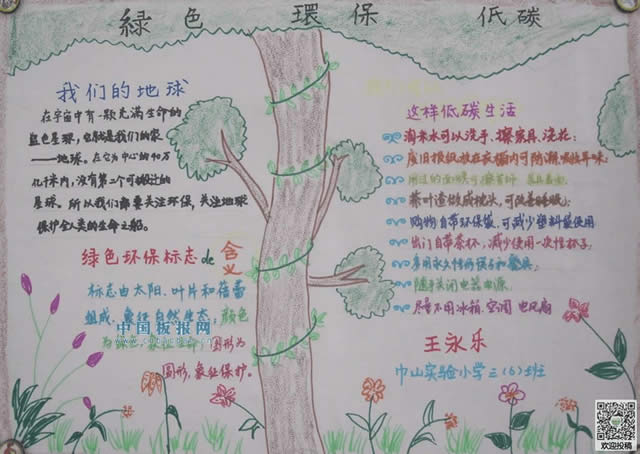 綠色 環保 低碳
我们的地球
在宇宙中有一颗充满生命的
蓝色星球,它就是我们的家
——地球。在它为中心的40万
亿千米内,没有第二个可搬迁的
星球。所以我们都要关注环保,关注地球
保护全人类的生命之船。
绿色环保标志de含义
标志由太阳、叶片和蓓蕾
组成,象征自然生态;颜色
为绿色,象征生命;图形为
圆形,象征保护。
中国板报网
这样低碳生活
淘米水可以洗手、擦家具、浇花;
废旧报纸放在衣橱内可防潮、吸收异味;
用过的面膜可擦首饰
茶叶渣做成枕头,可改善睡眠;
购物自带环保袋,可减少塑料袋使用
出门自带茶杯,减少使用一次性杯子;
多用永久性的筷子和餐具;
随手关闭电器电源
尽量不用冰箱、空调、电风扇
王永乐
巾山实验小学三(6)班
欢迎投稿